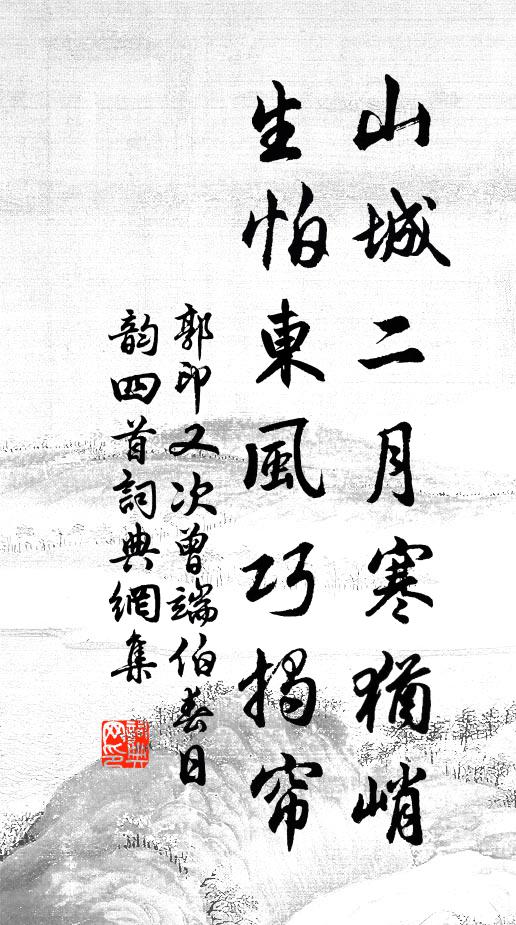 山城二月寒猶峭
生怕東風巧揭帘
郭印又次曾端伯春日
韵四首詞典網集